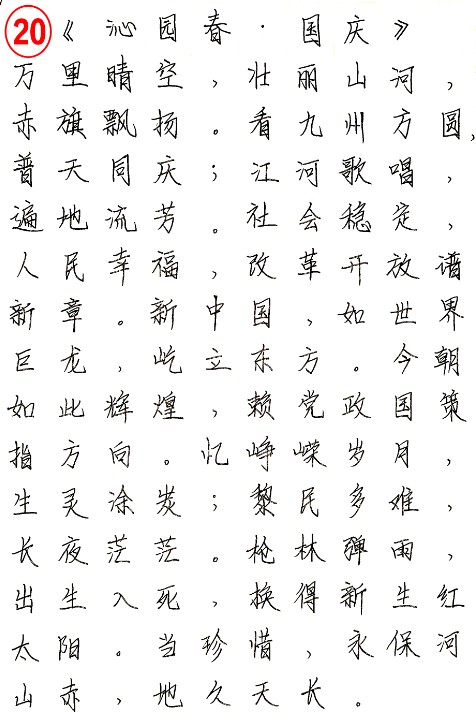 20《沁园春·国庆》
万里晴空，壮丽山河，
赤旗飘扬。看九州方圆，
普天同庆；江河歌唱，
遍地流芳。社会稳定，
人民幸福，改革开放谱
新章。新中国，如世界
巨龙，屹立东方。今朝
如此辉煌，赖党政国策
指方向。忆峥嵘岁月，
生灵涂炭；黎民多难，
长夜茫茫。枪林弹雨，
出生入死，换得新生红
太阳。当珍惜，永保河
山赤，地久天长。